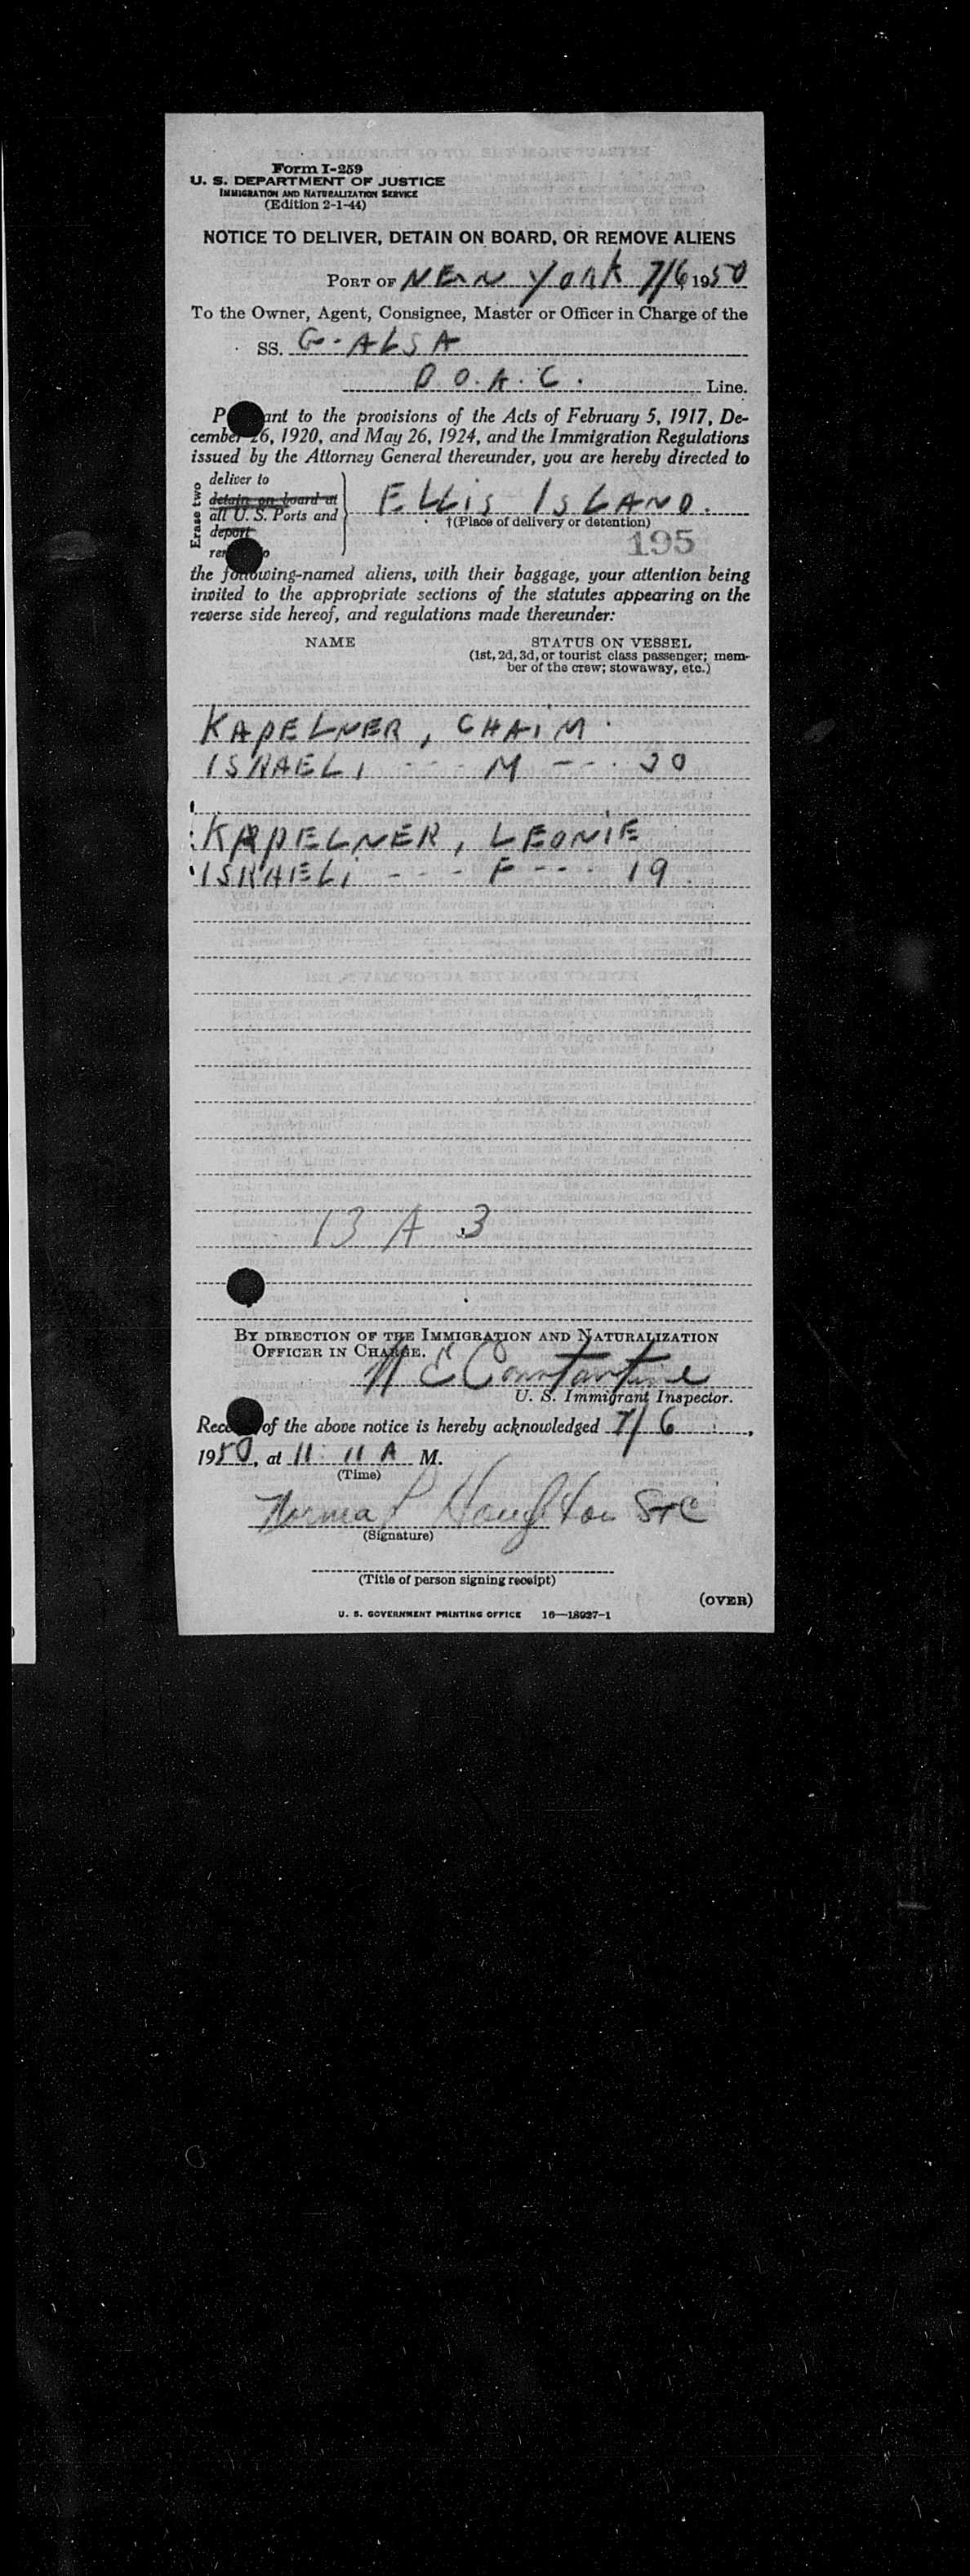 Form I-259
U. S. DEPARTMENT OF JUSTICE
IMMIGRATION AND NATURALIZATION SERVICE
(Edition 2-1-44)
NOTICE TO DELIVER, DETAIN ON BOARD, OR REMOVE ALIENS
PORT OF NEW YORK 7/6 1950
To the Owner, Agent, Consignee, Master or Officer in Charge of the
SS. G-ALSA
B.O.A.C. Line.
P ant to the provisions of the Acts of February 5, 1917, De-
cember 26, 1920, and May 26, 1924, and the Immigration Regulations
issued by the Attorney General thereunder, you are hereby directed to
Erase two
deliver to
detain on board at
all U. S. Ports and
deport
ELLIS ISLAND.
†(Place of delivery or detention)
195
the following-named aliens, with their baggage, your attention being
invited to the appropriate sections of the statutes appearing on the
reverse side hereof, and regulations made thereunder:
NAME STATUS ON VESSEL
(1st, 2d, 3d, or tourist class passenger; mem-
ber of the crew; stowaway, etc.)
KAPELNER, CHAIM
ISRAELI --- M --- 30
KAPELNER, LEONIE
ISRAELI --- F --- 19.
13 A 3
BY DIRECTION OF THE IMMIGRATION AND NATURALIZATION
OFFICER IN CHARGE.
N E Constantine
U. S. Immigrant Inspector.
Rec of the above notice is hereby acknowledged 7/6,
1950, at 11:11 A M.
(Time)
Norma P Houghton
(Signature)
(Title of person signing receipt)
(OVER)
U. S. GOVERNMENT PRINTING OFFICE 16—18927-1